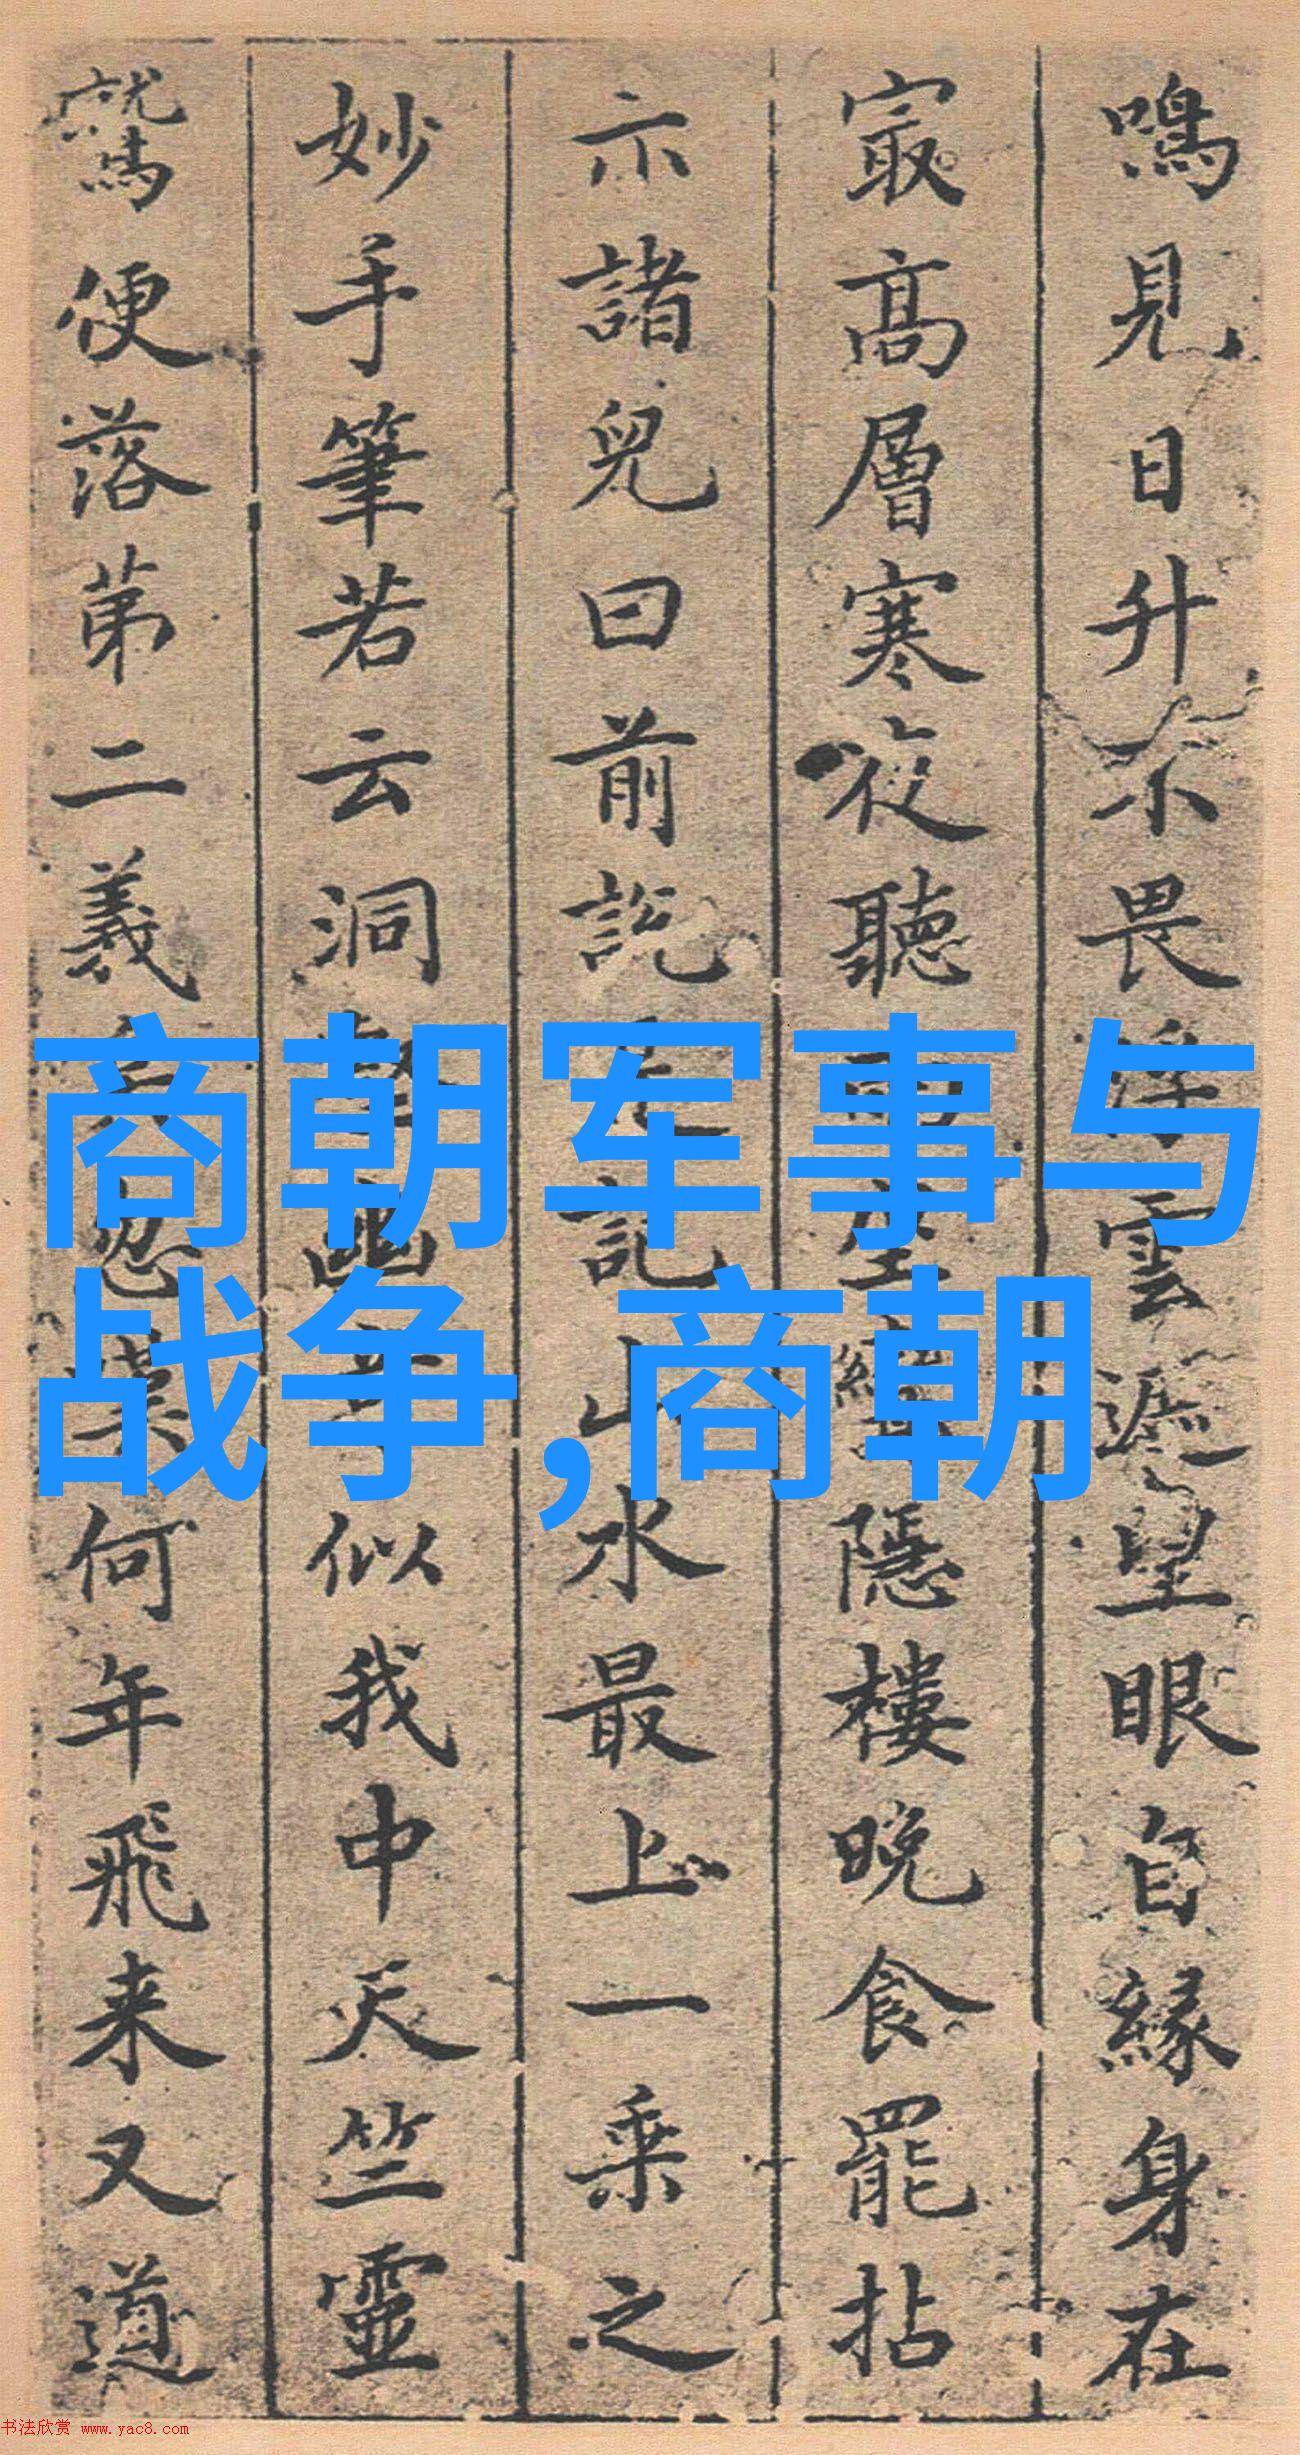 鳴見日升不畏浮雲遮望眼自緣身在
寂高層寒夜聽雨空隱樓晚食罷拈
示諸兒曰前說記山水最上一乘之
妙手筆若云洞似我中天竺靈
鷲便落第二義忽何年飛来又道
商朝军事与
战争,商朝
书法欣赏 www.yac8.com